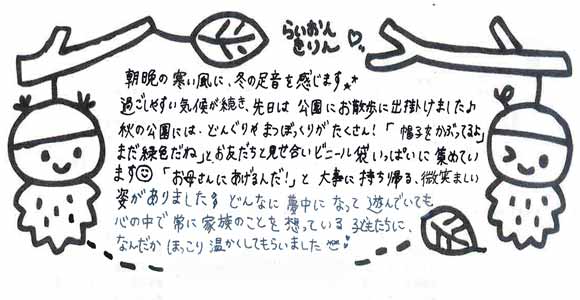 らいおん
きりん
朝晩の寒い風に、冬の足音を感じます
過ごしやすい気候が続き、先日は公園にお散歩に出掛けました♪
秋の公園には、どんぐりやまつぼっくりがたくさん!「帽子をかぶってるよ」
まだ緑色だね」とお友だちと見せ合いビニール袋いっぱいに集めてい
ます☺「お母さんにあげるんだ!」と大事に持ち帰る、微笑ましい
姿がありました♪どんなに夢中になって遊んでいても
心の中で常に家族のことを想っている子達たちに、
なんだかほっこり温かくしてもらいました